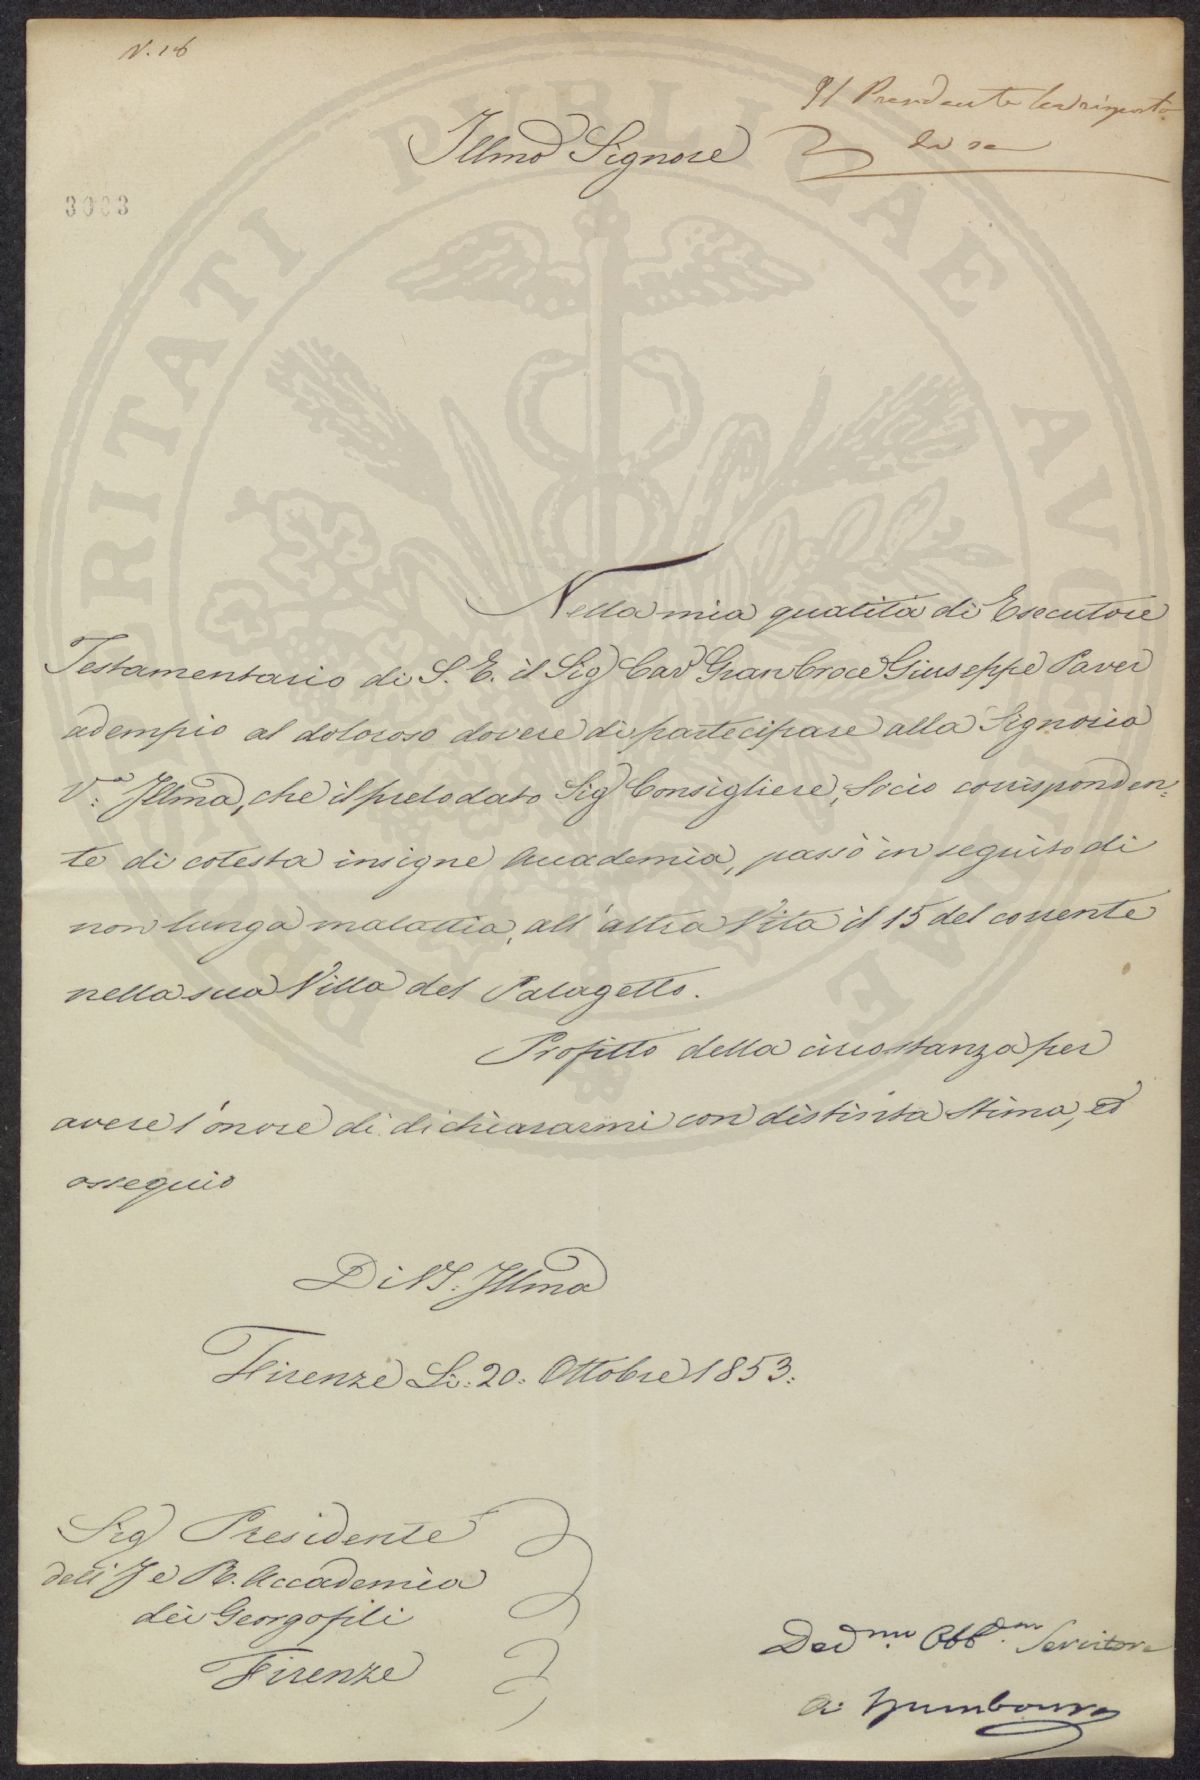 N. 16
Il Presidente
Illmo Signore
3003
PROSPERITATI PUBLICAE AUGENDAE
Nella mia qualità di Esecutore
Testamentario di S. E. il Sig Cav Gran Croce Giuseppe Paver
adempio al doloroso dovere di partecipare alla Signoria
V.a Illma, che il prelodato Sig Consigliere, Socio corrisponden=
te di cotesta insigne Accademia, passò in seguito di
non lunga malattia, all'altra Vita il 15 del corrente
nella sua Villa del Palagetto.
Profitto della circostanza per
avere l'onore di dichiararmi con distinta stima, ed
ossequio
Di V.S. Illma
Firenze Li: 20: Ottobre 1853:
Sig Presidente
dell'I e R. Accademia
dei Georgofili
Firenze
Dedmo Obbmo Servitore